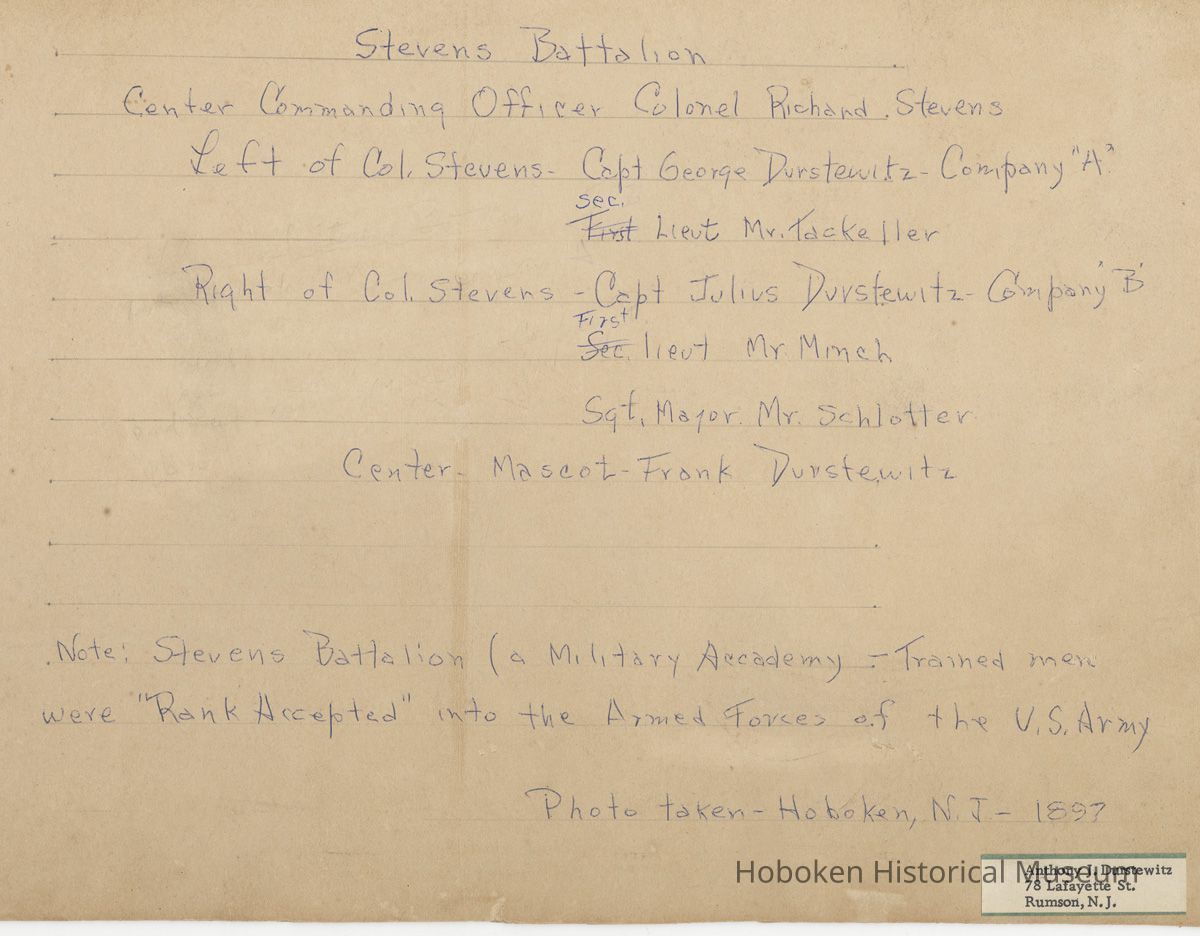 Stevens Battalion
Center Commanding Officer Colonel Richard Stevens
Left of Col. Stevens- Capt George Durstewitz- Company "A"
sec.
First Lieut Mr. Tackeller
Right of Col. Stevens - Capt Julius Durstewitz- Company "B"
First
Sec. lieut Mr. Minch
Sgt. Major. Mr. Schlotter
Center- Mascot- Frank Durstewitz
Note: Stevens Battalion (a Military Accademy - Trained men
were "Rank Accepted" into the Armed Forces of the U.S. Army
Photo taken- Hoboken, N.J- 1897
Hoboken Historical Museum
Anthony J. Durstewitz
78 Lafayette St.
Rumson, N. J.